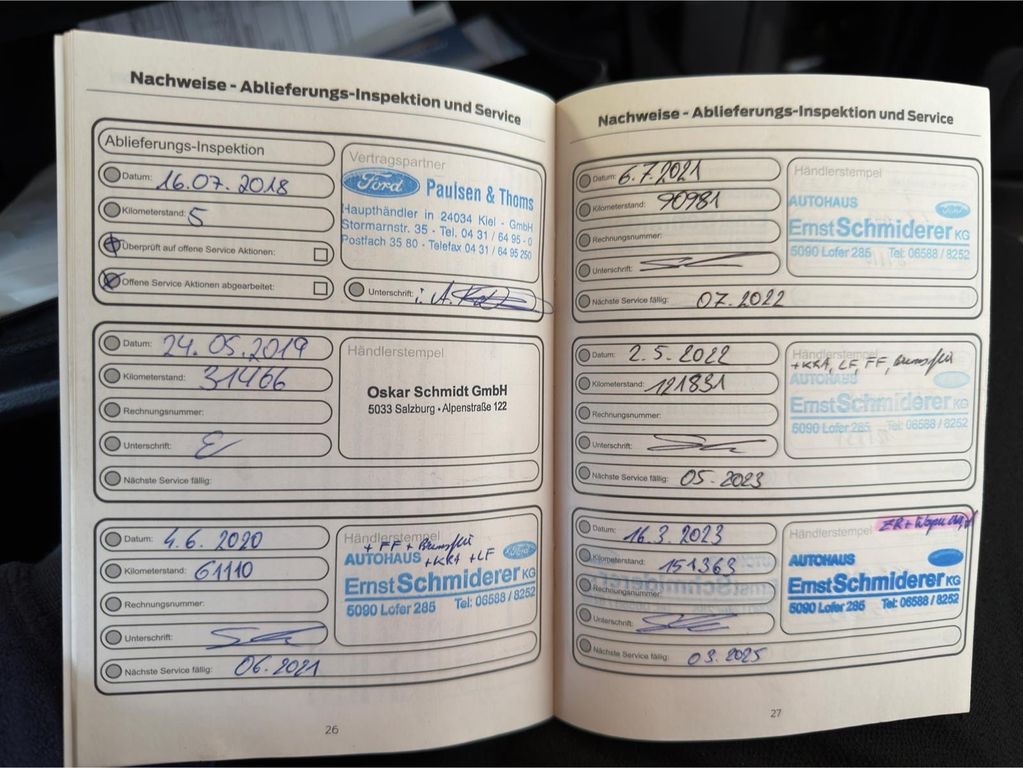 Nachweise - Ablieferungs-Inspektion und Service
Ablieferungs-Inspektion
Datum: 16.07.2018
Kilometerstand: 5
Überprüft auf offene Service Aktionen:
Offene Service Aktionen abgearbeitet:
Vertragspartner
Ford Paulsen & Thoms
Haupthändler in 24034 Kiel - GmbH
Stormarnstr. 35 - Tel. 04 31 / 64 95 - 0
Postfach 35 80 - Telefax 04 31 / 64 95 250
Unterschrift: i. A.
Datum: 24.05.2019
Kilometerstand: 31466
Rechnungsnummer:
Unterschrift:
Nächste Service fällig:
Händlerstempel
Oskar Schmidt GmbH
5033 Salzburg • Alpenstraße 122
Datum: 4.6.2020
Kilometerstand: 61110
Rechnungsnummer:
Unterschrift:
Nächste Service fällig: 06.2021
Händlerstempel
+ FF +
+KRA +LF
AUTOHAUS Ford
Ernst Schmiderer KG
5090 Lofer 285 Tel: 06588 / 8252
26
Nachweise - Ablieferungs-Inspektion und Service
Datum: 6.7.2021
Kilometerstand: 90981
Rechnungsnummer:
Unterschrift:
Nächste Service fällig: 07.2022
Händlerstempel
AUTOHAUS
Ernst Schmiderer KG
5090 Lofer 285 Tel: 06588 / 8252
Datum: 2.5.2022
Kilometerstand: 121831
Rechnungsnummer:
Unterschrift:
Nächste Service fällig: 05.2023
Händlerstempel
+KRA, LF, FF,
AUTOHAUS
Ernst Schmiderer KG
5090 Lofer 285 Tel: 06588 / 8252
Datum: 16.3.2023
Kilometerstand: 151363
Rechnungsnummer:
Unterschrift:
Nächste Service fällig: 03.2025
Händlerstempel
AUTOHAUS
Ernst Schmiderer KG
5090 Lofer 285 Tel: 06588 / 8252
27